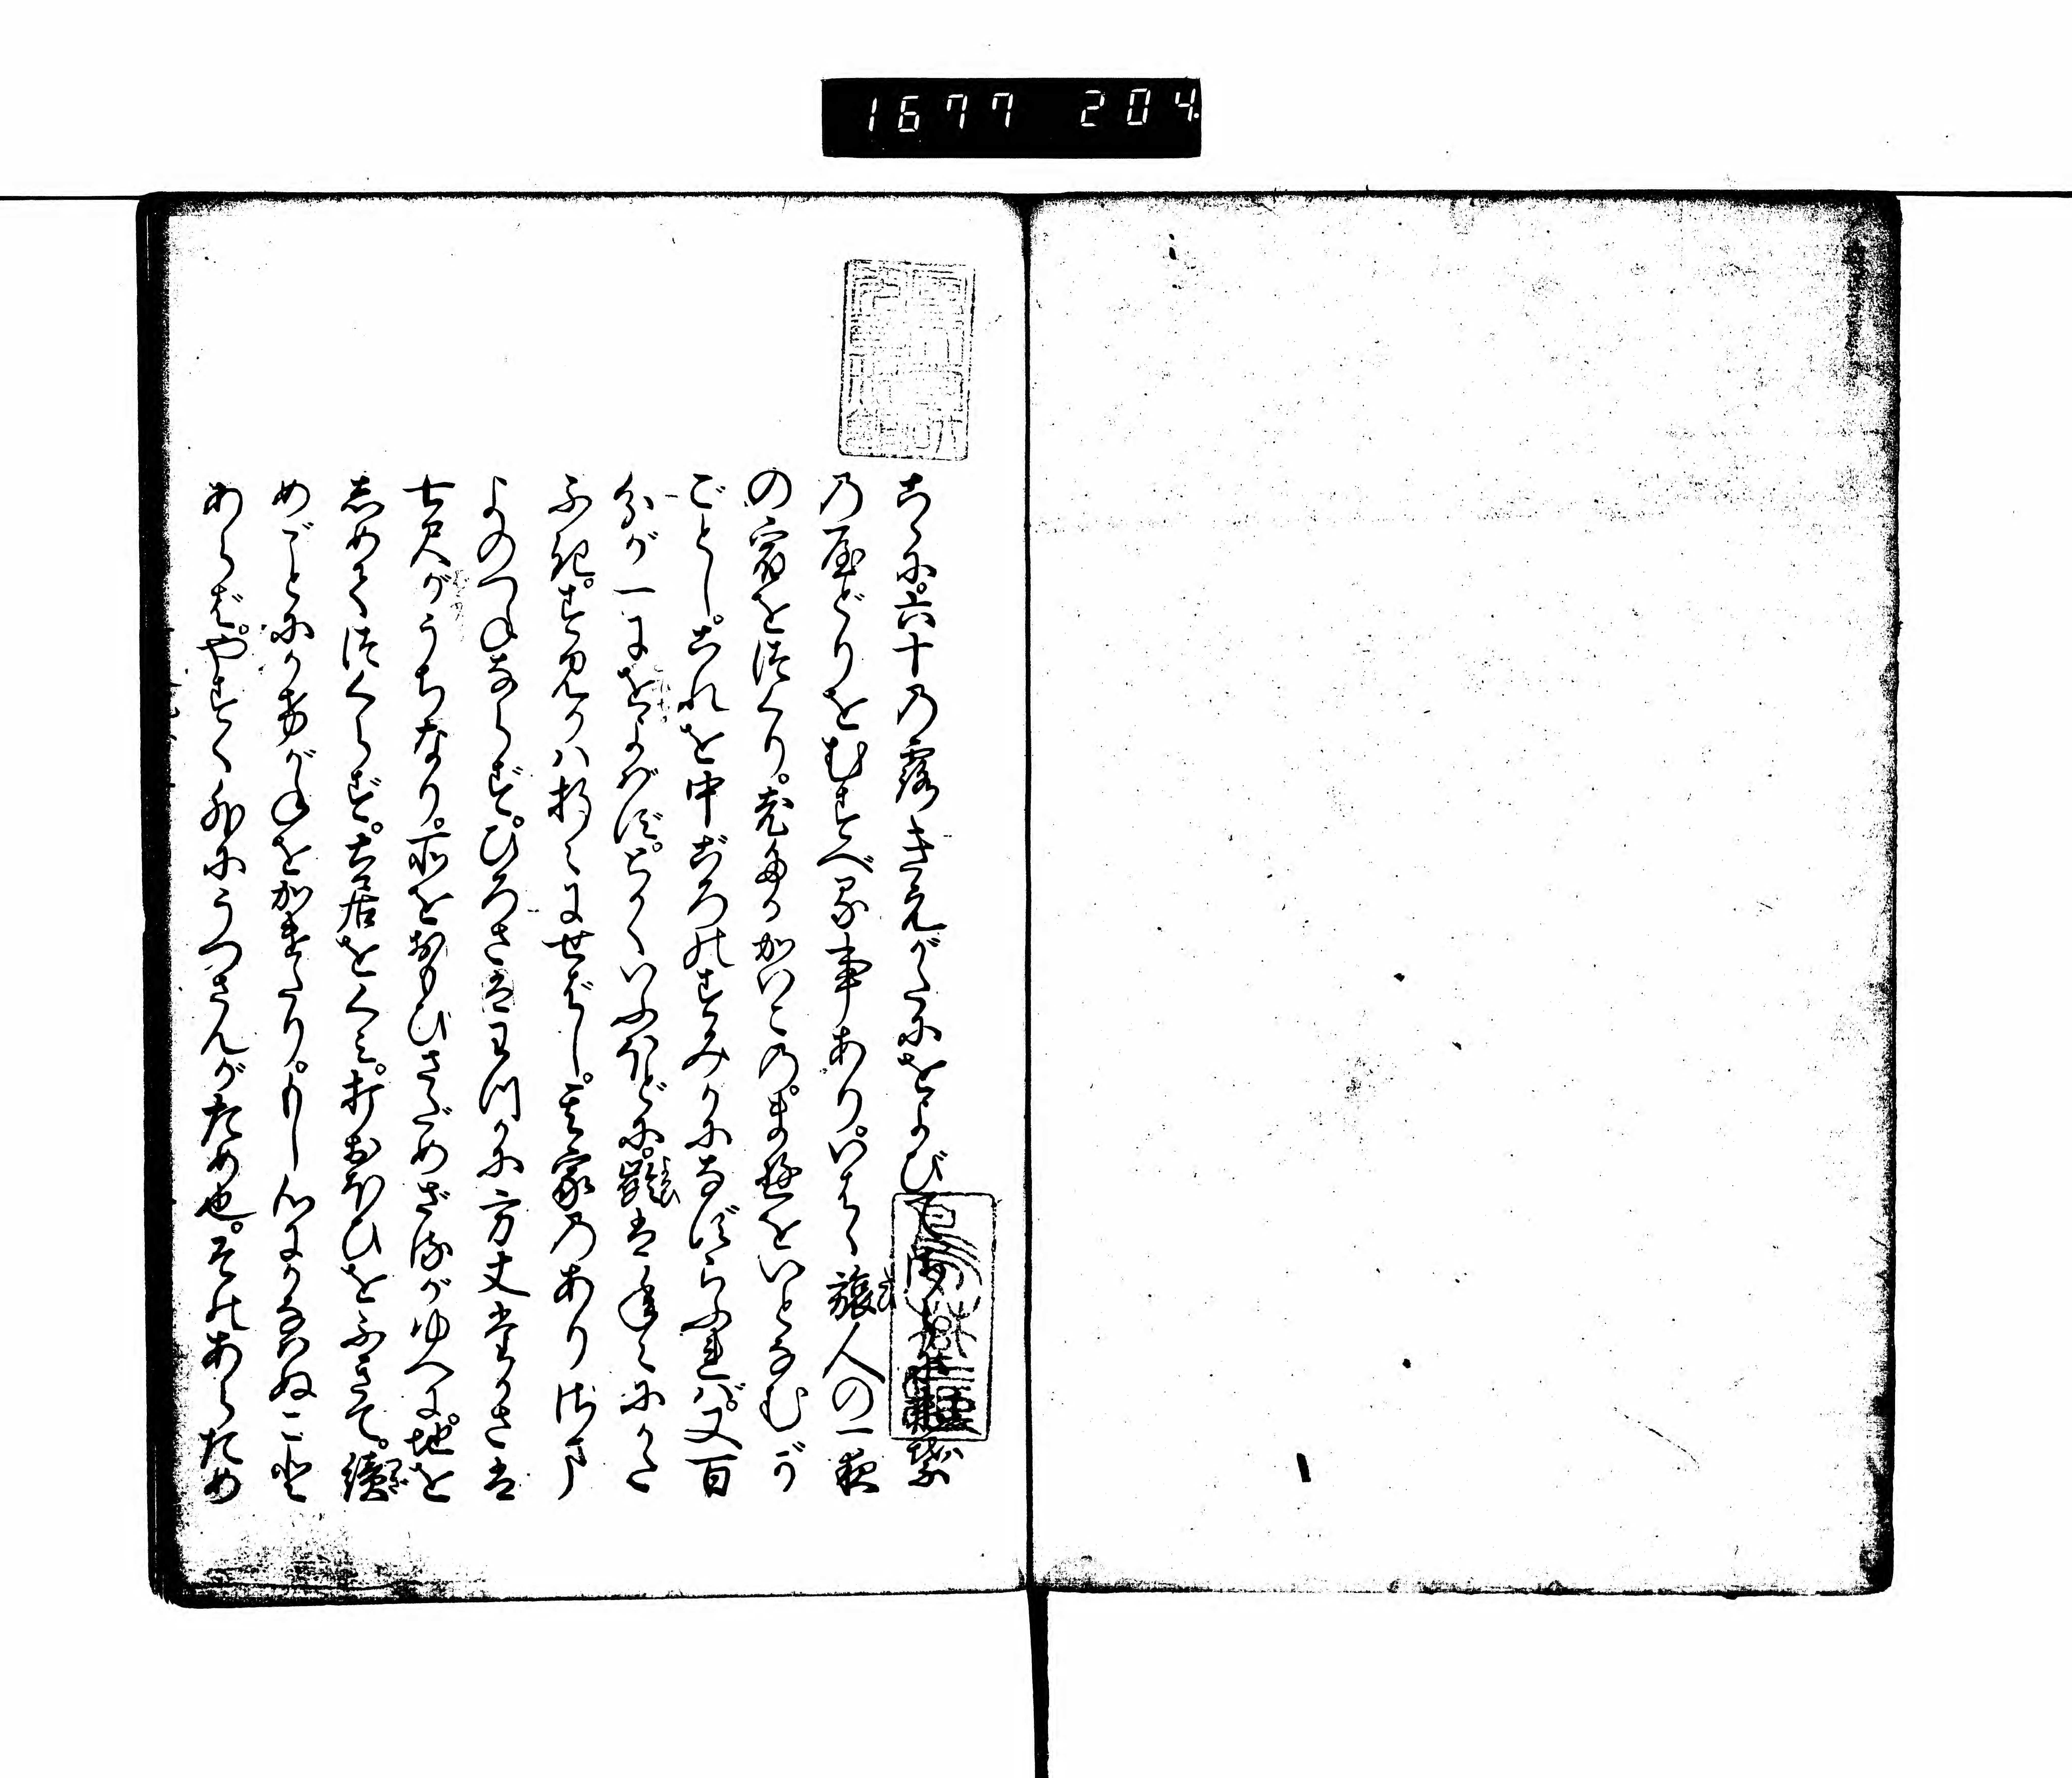 1677 204
こゝに。六十の露きえがたにをよびて。
のやどりをむすべる事あり。いはゝ旅人の一夜
の宿をつくり。老たるかいこの。まゆをいとなむが
ごとし。これを中ごろのすみかになずらふれば。又百
分が一にをよばず。とかくいふほどに。齢は年々にかた
ふき。すみかは折々にせばし。其家のありさま
よのつねならず。ひろさはわつかに方丈たかさは
七尺がうちなり。所をおもひさだめざるがゆへに。地を
しめてつくらず。土居をくみ。打おほひをふきて。続
めごとにかけがねをかけたり。もし心にかなはぬこと
あらば。やすく外にうつさんがため也。そのあらため